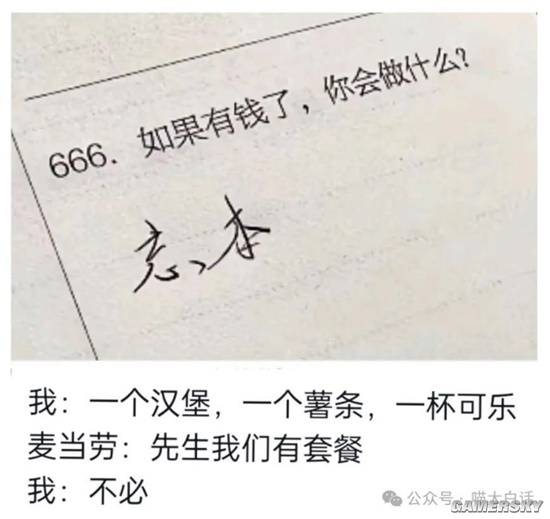 666. 如果有钱了，你会做什么？
忘本
我：一个汉堡，一个薯条，一杯可乐
麦当劳：先生我们有套餐
我：不必
公众号·喵大白话
GAMERSKY